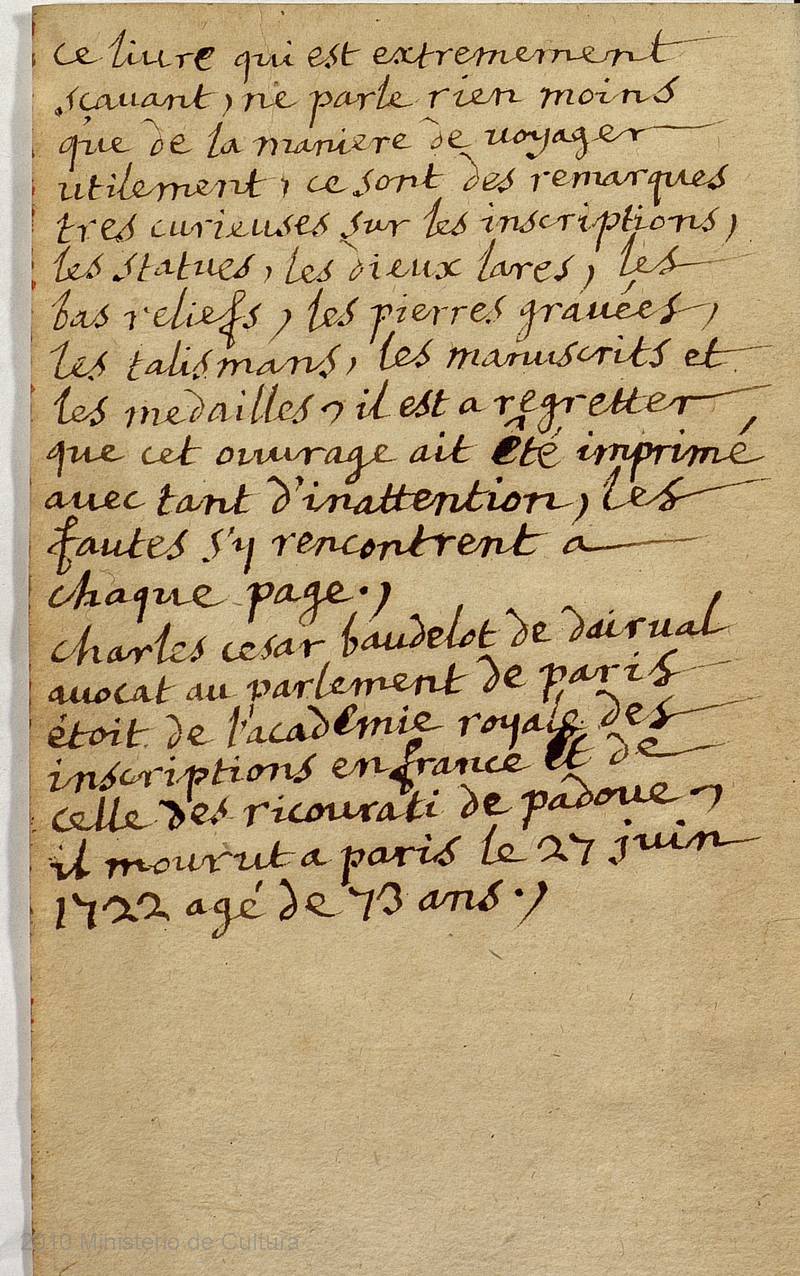 ce livre qui est extremement
sçavant, ne parle rien moins
que de la maniere de voyager
utilement, ce sont des remarques
tres curieuses sur les inscriptions,
les statues, les dieux lares, les
bas reliefs, les pierres gravées,
les talismans, les manuscrits et
les medailles, il est a regretter
que cet ouvrage ait êté imprimé
avec tant d'inattention, les
fautes s'y rencontrent a
chaque page.,
charles cesar baudelot de dairval
avocat au parlement de paris
étoit de l'academie royale des
inscriptions en france et de
celle des ricourati de padoue,
il mourut a paris le 27 juin
1722 agé de 73 ans.,
2010 Ministerio de Cultura